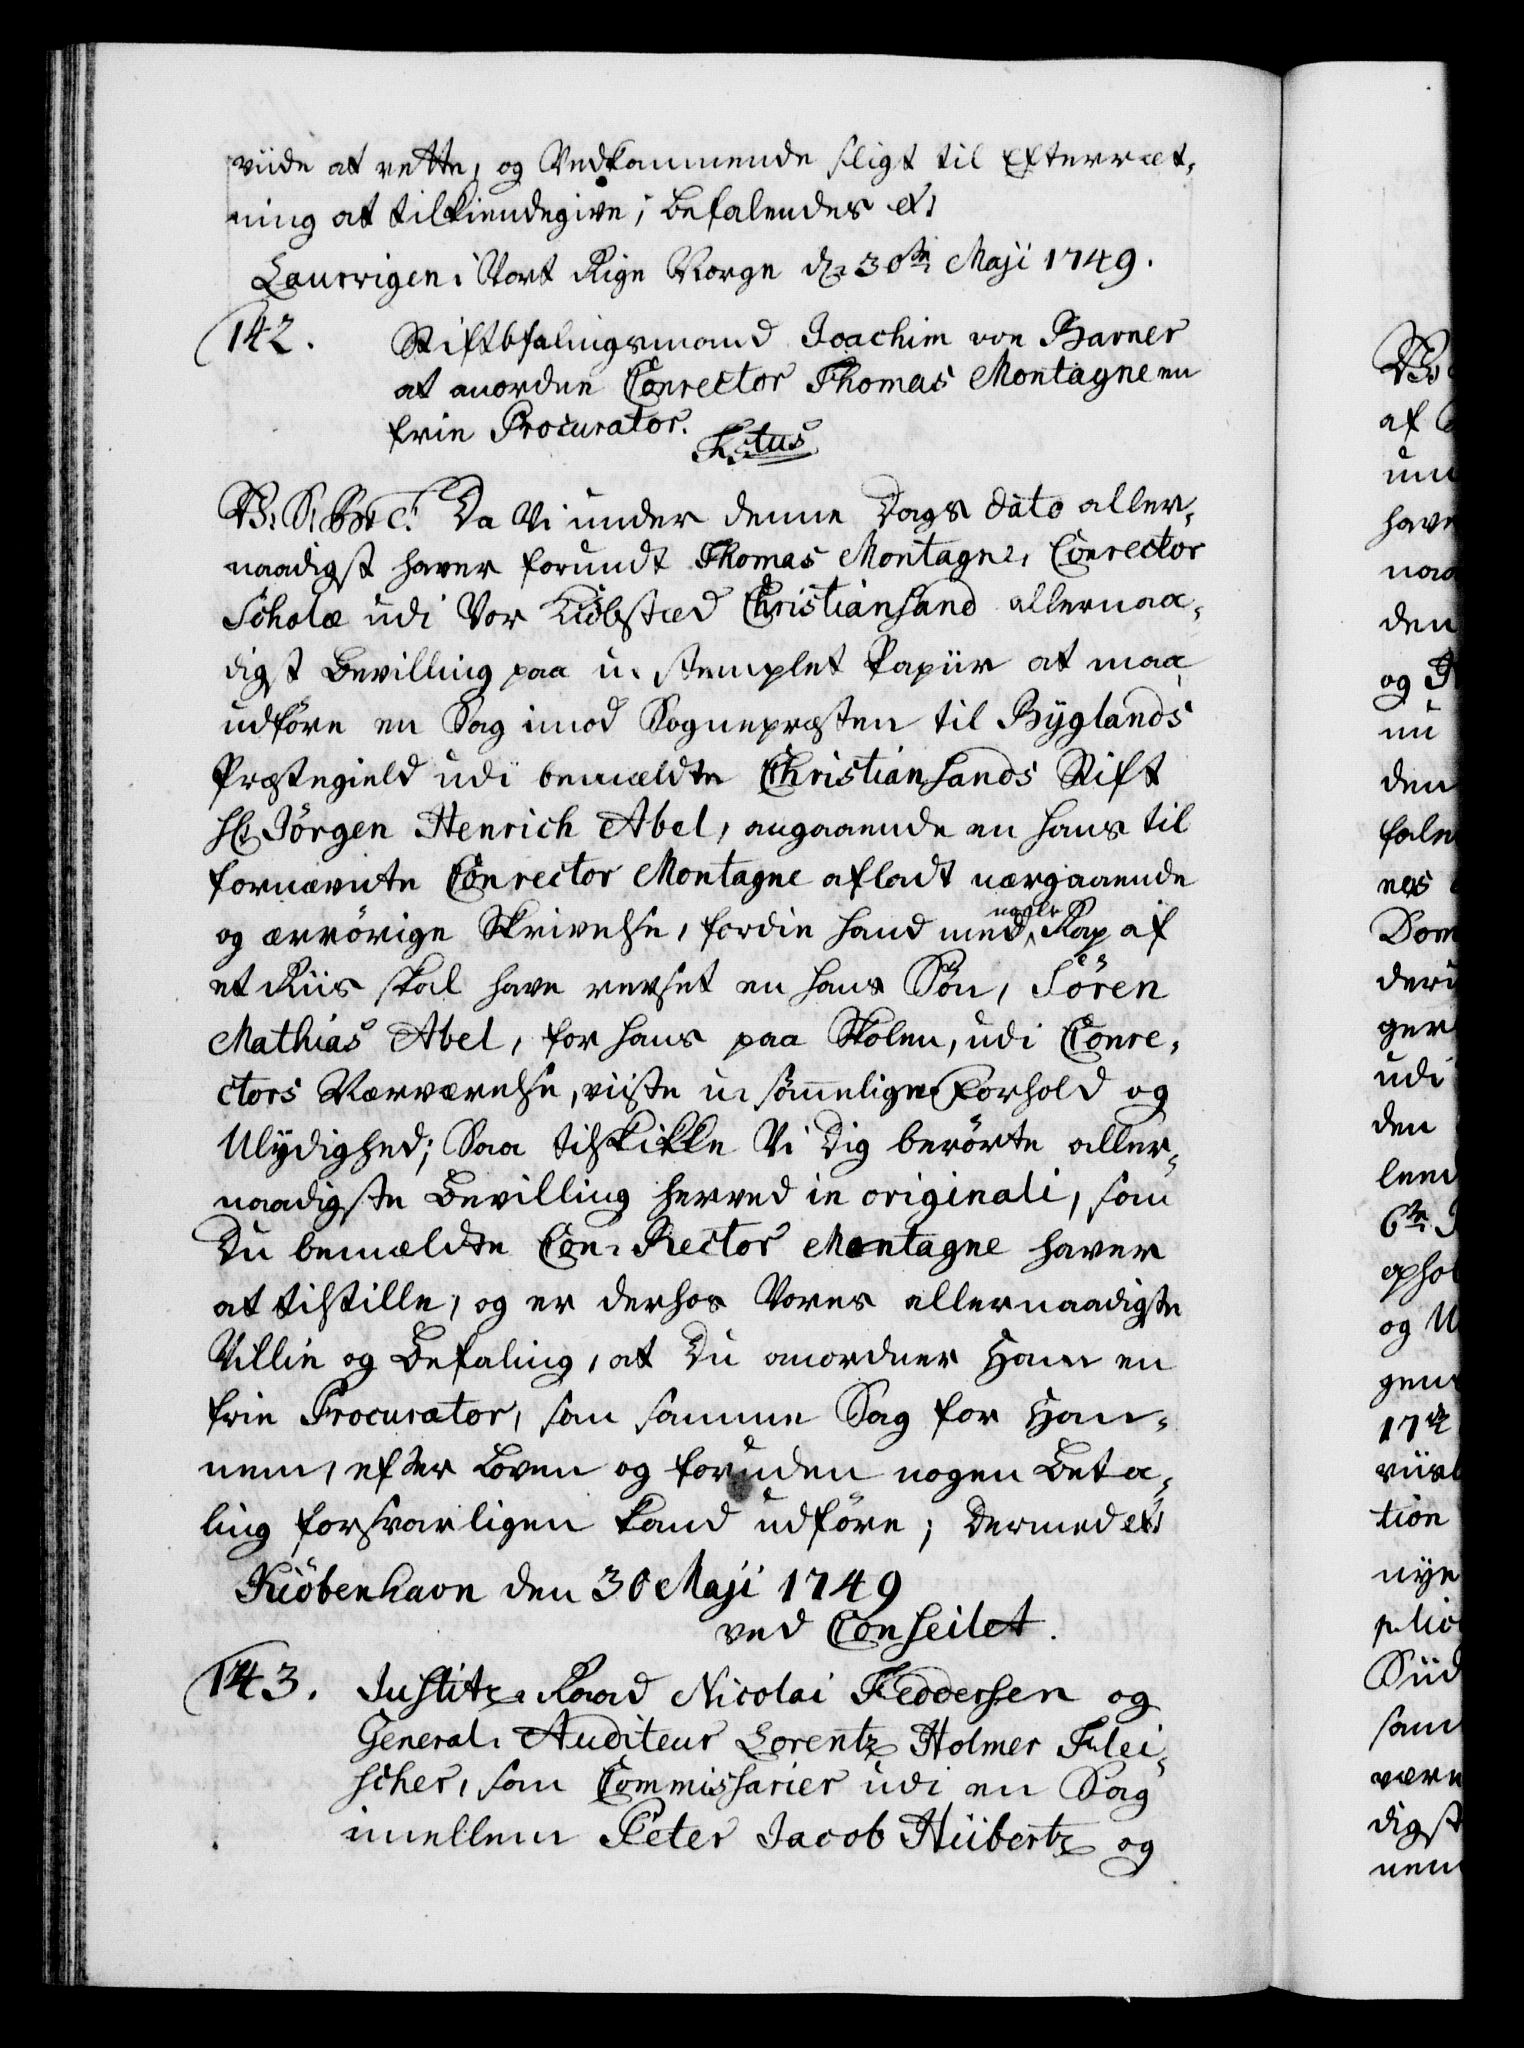 viide at rette, og Vedkommende sligt til Efterræt-
ning at tilkiendegive; Befalendes etc
Laurvigen i Vort Rige Norge d. 30te Maji 1749.
142. Stiftbefalingsmand Joachim von Barner
at anordne Conrector Thomas Montagne en
frie Procurator.
F: 5tus
V. S. G. T. Da Vi under denne Dags dato aller-
naadigst haver forundt Thomas Montagne, Conrector
Scholæ udi Vor Kiöbstæd Christiansand allernaa-
digst Bevilling paa u-stemplet Papiir at maa
udföre en Sag imod Sognepræsten til Byglands
Præstegield udi bemældte Christiansands Stift
Hr. Jörgen Henrich Abel, angaaende en hans til
fornævnte Conrector Montagne afladt nærgaaende
og ærrörige Skrivelse, fordie hand med nogle Rap af
et Riis skal have revset en hans Sön, Sören
Mathias Abel, for hans paa Skolen, udi Conre-
ctors Nærværelse, viiste u-sömmelige Forhold og
Ulydighed; Saa tilskikke Vi Dig berörte aller-
naadigste Bevilling herved in originali, som
Du bemældte Con-Rector Montagne haver
at tilstille, og er derhos Vores allernaadigste
Villie og Befaling, at Du anordner Ham en
frie Procurator, som samme Sag for Han-
nem, efter Loven og foruden nogen Beta-
ling forsvarligen kand udföre; Dermed etc
Kiöbenhavn den 30 Maji 1749
ved Conseilet.
143. Justitz-Raad Nicolai Feddersen og
General-Auditeur Lorentz Holmer Flei-
scher, som Commissarier udi en Sag
imellem Peter Jacob Hübertz og
af
und
have
naa
den
og
nu
den
fale
nes
Dom
ger
udi
den
lem
6te
og
17
tion
nye
som
være
digst
nem